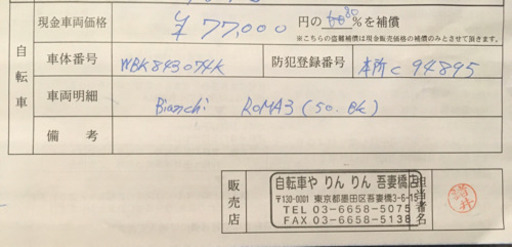 現金車両価格 ¥77,000 円の 80 %を補償
※こちらの盗難補償は現金販売価格の補償のみとさせて頂きます。
自転車
車体番号 WBK843074K 防犯登録番号 本所C 94895
車両明細 Bianchi ROMA3 (50. BK)
備考
販売店
自転車や りん りん 吾妻橋店
〒130-0001 東京都墨田区吾妻橋3-6-15
TEL 03-6658-5075
FAX 03-6658-5138
担当者名